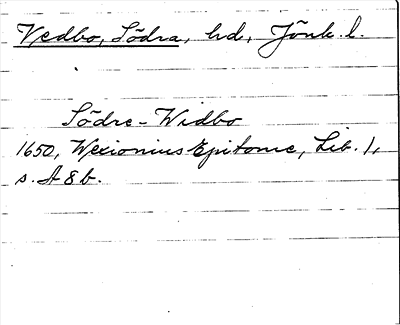 Vedbo, Södra, hd, Jönk. l.
Södre-Widbo
1650, Wexionius Epitome, Lib. 1,
s. A 8 b.